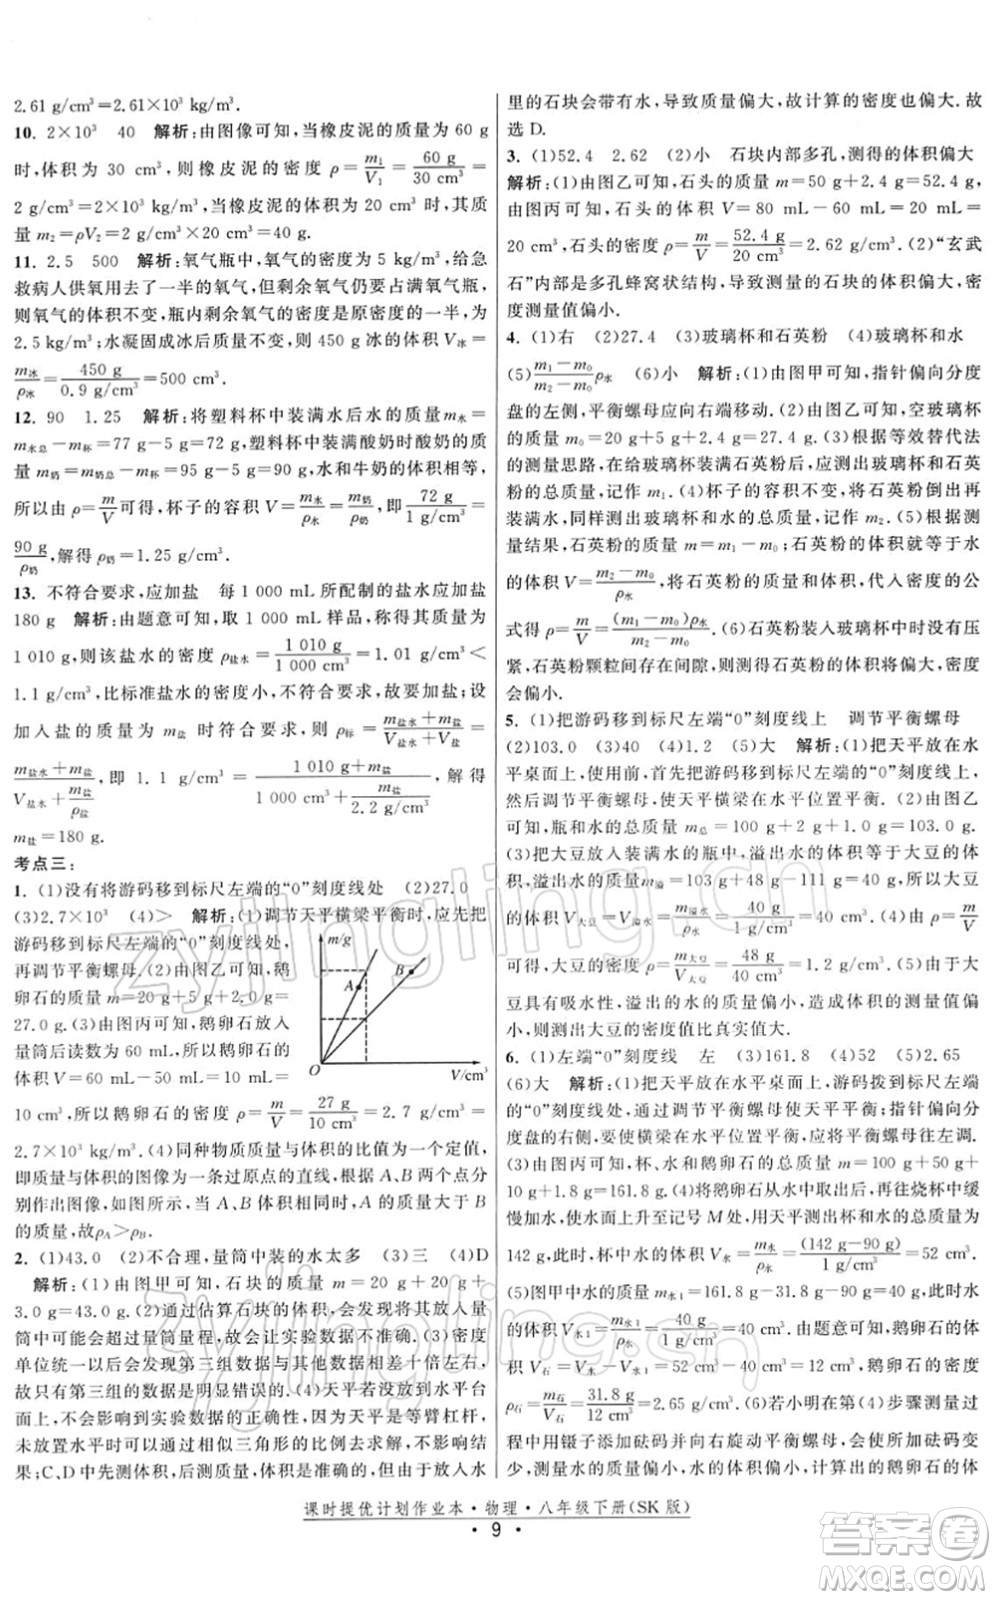 2.61 g/cm³=2.61×10³ kg/m³.
10. 2×10³ 40 解析:由图像可知,当橡皮泥的质量为 60 g
时,体积为 30 cm³,则橡皮泥的密度 ρ=m₁/V₁=60 g/30 cm³=
2 g/cm³=2×10³ kg/m³,当橡皮泥的体积为 20 cm³ 时,其质
量 m₂=ρV₂=2 g/cm³×20 cm³=40 g.
11. 2.5 500 解析:氧气瓶中,氧气的密度为 5 kg/m³,给急
救病人供氧用去了一半的氧气,但剩余氧气仍要占满氧气瓶,
则氧气的体积不变,瓶内剩余氧气的密度是原密度的一半,为
2.5 kg/m³;水凝固成冰后质量不变,则质量 450 g 冰的体积 V冰=
m冰/ρ冰=450 g/0.9 g/cm³=500 cm³.
12. 90 1.25 解析:将塑料杯中装满水后水的质量 m水=
m水总－m杯=77 g－5 g=72 g,塑料杯中装满酸奶时酸奶的质
量 m奶=m奶总－m杯=95 g－5 g=90 g,水和牛奶的体积相等,
所以由 ρ=m/V可得,杯子的容积 V=m水/ρ水=m奶/ρ奶,即72 g/1 g/cm³=
90 g/ρ奶,解得 ρ奶=1.25 g/cm³.
13. 不符合要求,应加盐 每 1 000 mL 所配制的盐水应加盐
180 g 解析:由题意可知,取 1 000 mL 样品,称得其质量为
1 010 g,则该盐水的密度 ρ盐水=1 010 g/1 000 cm³=1.01 g/cm³<
1.1 g/cm³,比标准盐水的密度小,不符合要求,故要加盐;设
加入盐的质量为 m盐 时符合要求,则 ρ标=m盐水+m盐/V盐水+V盐=
m盐水+m盐/V盐水+m盐/ρ盐,即 1.1 g/cm³=1 010 g+m盐/1 000 cm³+m盐/2.2 g/cm³,解得
m盐=180 g.
考点三:
1. (1)没有将游码移到标尺左端的“0”刻度线处 (2)27.0
(3)2.7×10³ (4)> 解析:(1)调节天平横梁平衡时,应先把
游码移到标尺左端的“0”刻度线处,
再调节平衡螺母.(2)由图乙可知,鹅
卵石的质量 m=20 g+5 g+2.0 g=
27.0 g.(3)由图丙可知,鹅卵石放入
量筒后读数为 60 mL,所以鹅卵石的
体积 V=60 mL－50 mL=10 mL=
m/g
A
B
O
V/cm³
10 cm³,所以鹅卵石的密度 ρ=m/V=27 g/10 cm³=2.7 g/cm³=
2.7×10³ kg/m³.(4)同种物质质量与体积的比值为一个定值,
即质量与体积的图像为一条过原点的直线,根据 A、B 两个点分
别作出图像,如图所示,当 A、B 体积相同时,A 的质量大于 B
的质量,故ρA>ρB.
2. (1)43.0 (2)不合理,量筒中装的水太多 (3)三 (4)D
解析:(1)由图甲可知,石块的质量 m=20 g+20 g+
3.0 g=43.0 g.(2)通过估算石块的体积,再放入相同水量的量
筒中可能超过量筒量程,故会让实验数据不准确.(3)密度
单位统一时发现第三组数据与其他数据相差十倍左右,
故只有第三组的数据是明显错误的.(4)天平若放到水平台
面上,不会影响到实验数据的准确性,因为天平是等臂杠杆,
未放置水平时可以通过相似三角形的方法推出不影响实验结
果;C、D 中先测体积,再测质量会导致结果不准,由于放入水
里的石块会带有水,导致质量偏大,故计算的密度也偏大.故
选 D.
3. (1)52.4 2.62 (2)小 石块内部多孔,测得的体积偏大
解析:(1)由图乙可知,石头的质量 m=50 g+2.4 g=52.4 g,
由图丙可知,石头的体积 V=80 mL－60 mL=20 mL=
20 cm³,石头的密度 ρ=m/V=52.4 g/20 cm³=2.62 g/cm³.(2)“玄武
石”内部是多孔蜂窝状结构,导致测量的石块的体积偏大,
密度测量值偏小.
4. (1)右 (2)27.4 (3)玻璃杯和石英粉 (4)玻璃杯和水
(5)m₁－m₀/m₂－m₀ρ水 (6)小 解析:(1)由图甲可知,指针偏向分度
盘的左侧,平衡螺母应向右端移动.(2)由图乙可知,空玻璃杯
的质量 m₀=20 g+5 g+2.4 g=27.4 g.(3)根据等效替代法
的测量思路,在给玻璃杯装满石英粉后,应测出玻璃杯和石英
粉的总质量,记作 m₁.(4)杯子的容积不变,将石英粉倒出再
装满水,同样测出玻璃杯和水的总质量,记作 m₂.(5)根据实验
测量结果,石英粉的质量 m=m₁－m₀,石英粉的体积就等于水
的体积 V=m₂－m₀/ρ水,将石英粉的质量和体积,代入密度的公
式得 ρ=m/V=(m₁－m₀)ρ水/m₂－m₀.(6)石英粉装入玻璃杯中时没有压
紧,石英粉颗粒间存在间隙,则石英粉的体积将偏大,密度
会偏小.
5. (1)把游码移到标尺左端“0”刻度线上 调节平衡螺母
(2)103.0 (3)40 (4)1.2 (5)大 解析:(1)把天平放在水
平桌面上,首先把游码移到标尺左端的“0”刻度线上,
然后调节平衡螺母,使天平横梁在水平位置平衡.(2)由图乙
可知,瓶和水的总质量 m总=100 g+3.0 g=103.0 g.
(3)把大豆放入装满水的瓶中,溢出水的体积等于大豆的体
积,溢出水的质量 m溢=103 g+48 g－111 g=40 g,所以大豆的
体积 V大豆=V溢水=m溢水/ρ水=40 g/1 g/cm³=40 cm³.(4)由 ρ=m/V
可得,大豆的密度 ρ=m大豆/V大豆=48 g/40 cm³=1.2 g/cm³.(5)由于大
豆具有吸水性,溢出的水的质量偏小,造成体积的测量值偏
小,则测出大豆的密度值比真实值大.
6. (1)左端“0”刻度线 左 (3)161.8 (4)52 (5)2.65
(6)大 解析:(1)把天平放在水平桌面上,游码拨到标尺左端
的“0”刻度线处,再调节平衡螺母使天平平衡;指针偏向分
度盘的右侧,要使横梁在水平位置平衡,应将平衡螺母往左调.
(3)由图可知,烧杯、水和鹅卵石的总质量为 100 g+50 g+
10 g+1.8 g=161.8 g.(4)将鹅卵石从水中取出后,再往烧杯中缓
慢加水,使水面上升至记号 M 处,用天平测出杯和水的总质量为
142 g,此时,杯中水的体积 V水=m水/ρ水=(142 g－90 g)/1 g/cm³=52 cm³.
(5)图甲中水的质量为 m水1=161.8 g－31.8 g－90 g=40 g,此时水
的体积 V水1=m水1/ρ水=40 g/1 g/cm³=40 cm³.由题意可知,鹅卵石的体
积 V石=V水－V水1=52 cm³－40 cm³=12 cm³,鹅卵石的密度
ρ石=m石/V石=31.8 g/12 cm³=2.65 g/cm³.(6)若小明在第 4 步骤测量过
程中用镊子添加砝码并向右旋动平衡螺母,会使所加砝码质量
偏小,测量的水的质量偏小,水的体积偏小,鹅卵石的体
课时提优计划作业本·物理·八年级下册(SK 版)
· 9 ·
zyjingling.cn
zyjingling.cn
答案圈
MXQE.COM